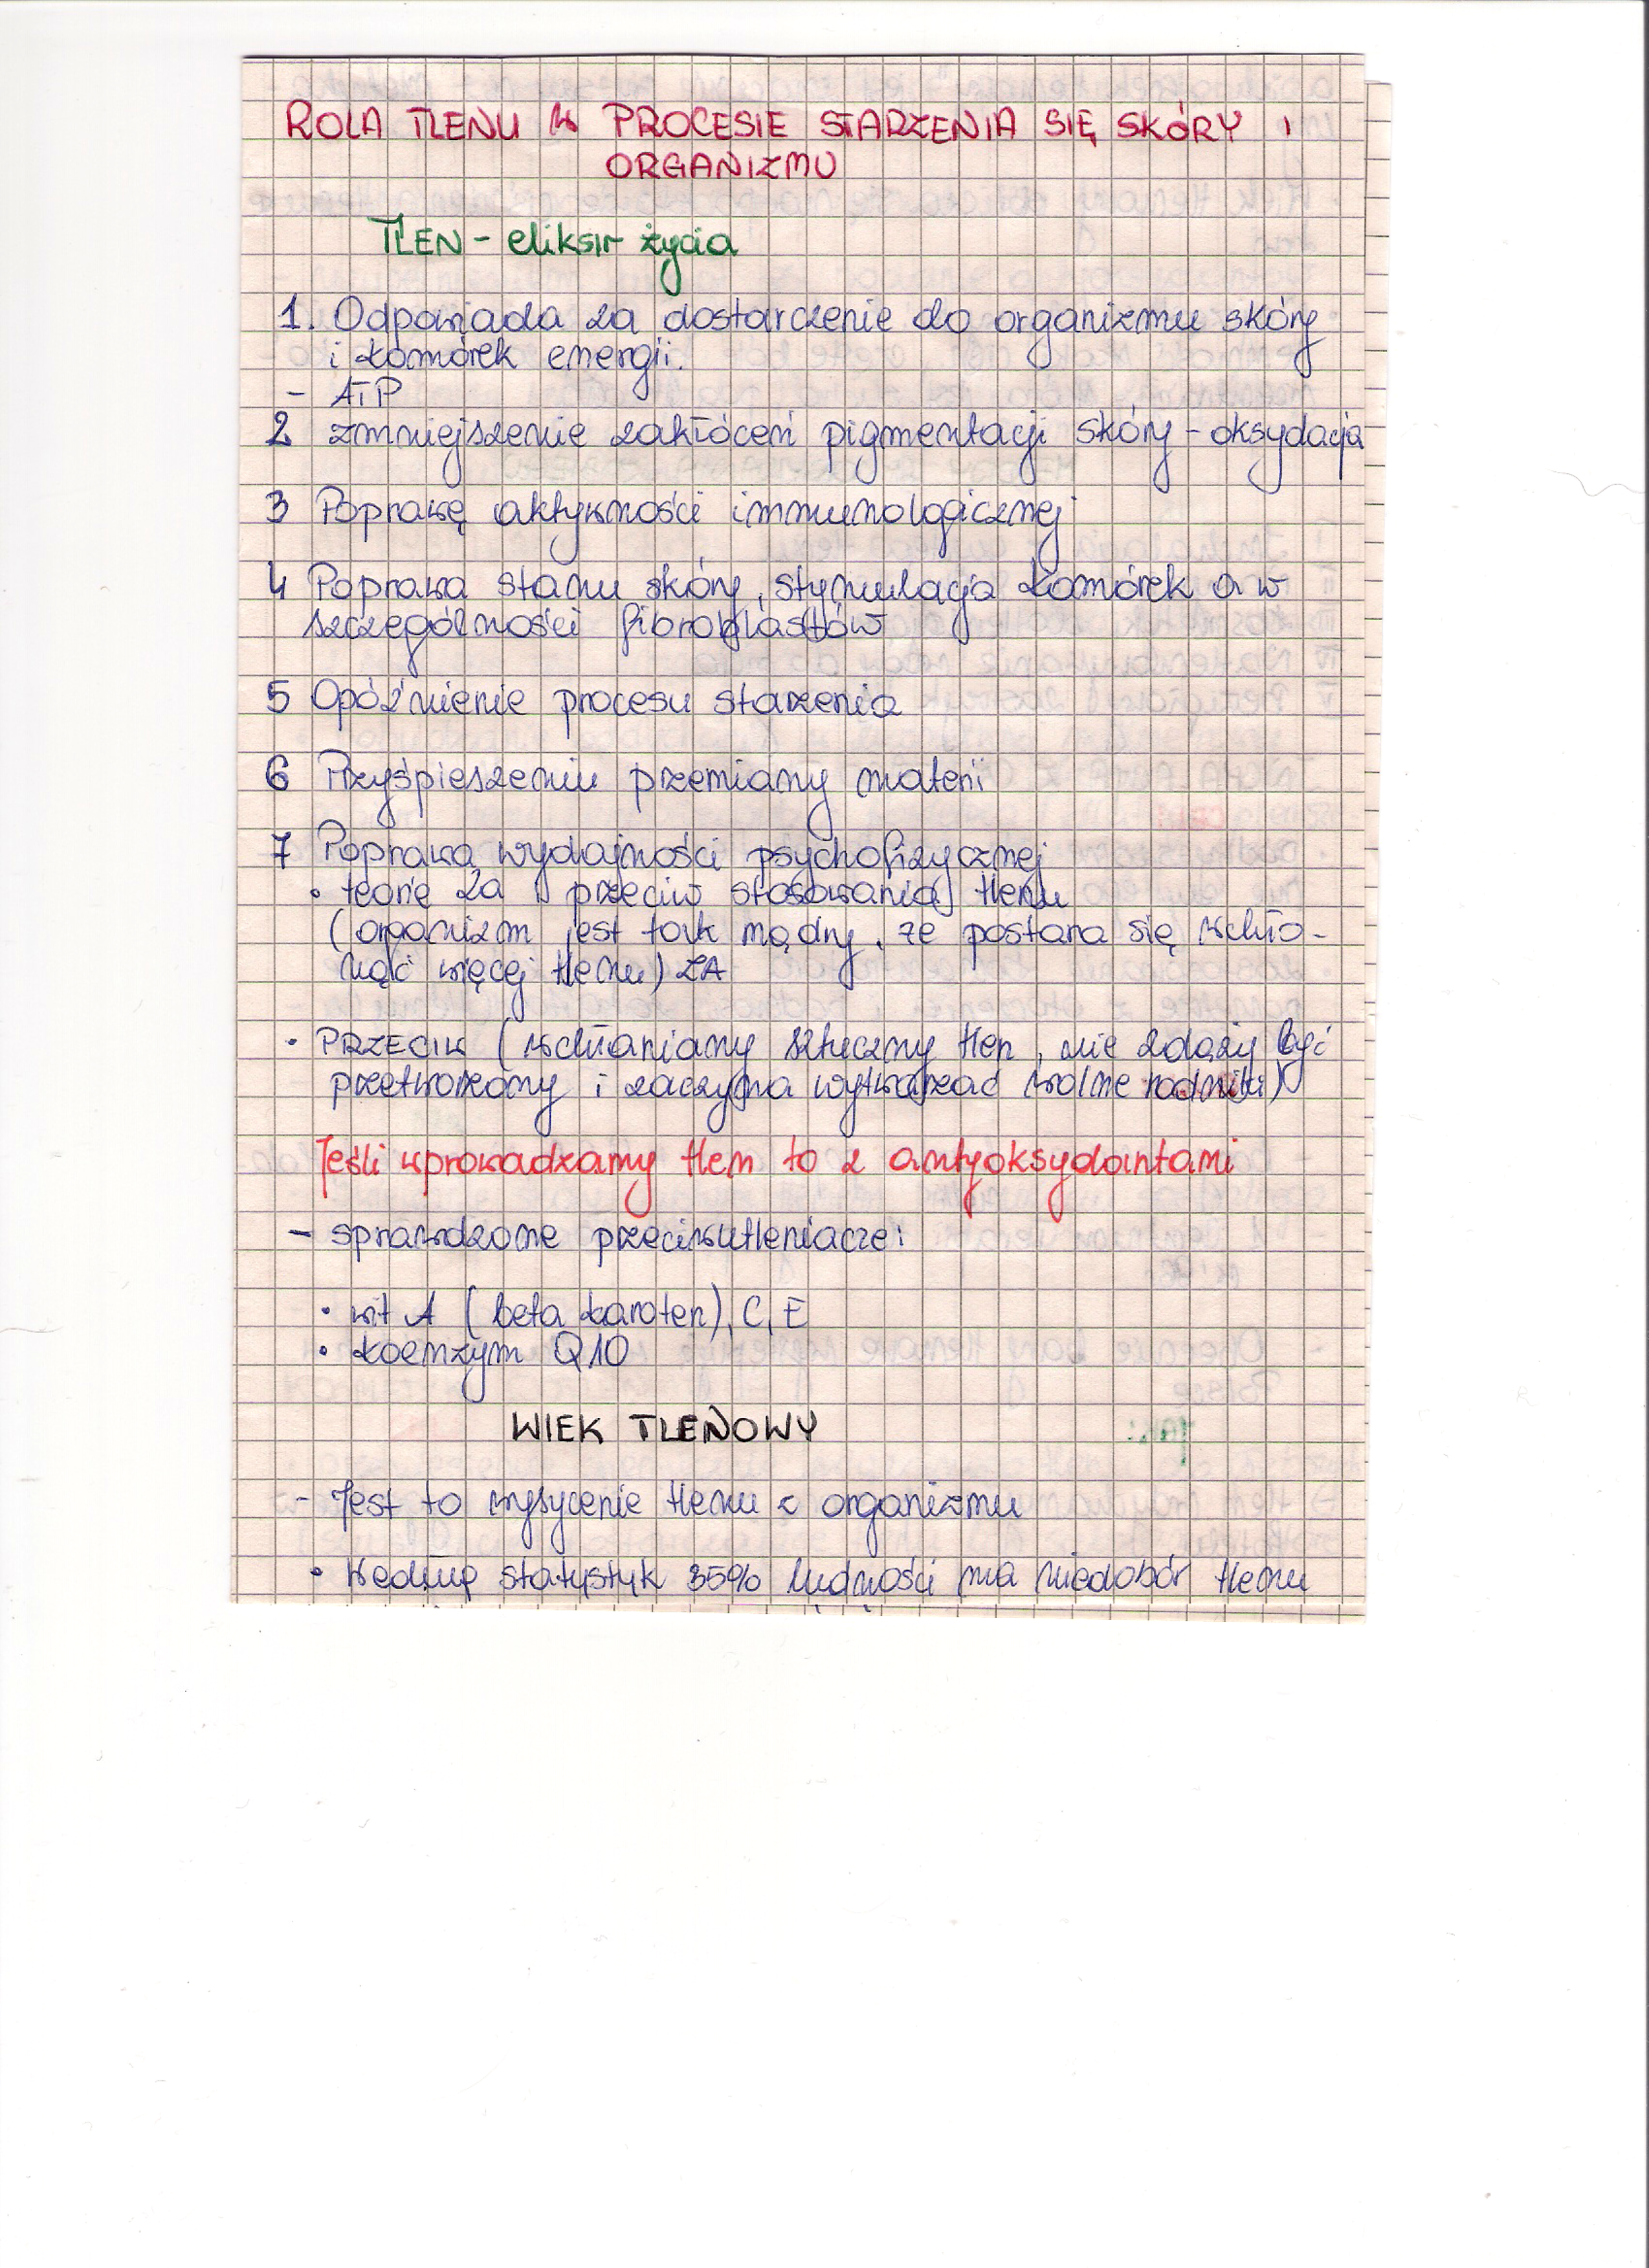 ROLA TLENU W PROCESIE STARZENIA SIĘ SKÓRY I
ORGANIZMU
TLEN - eliksir życia
1. Odpowiada za dostarczenie do organizmu skóry
i komórek energii.
- ATP
2 zmniejszenie zakłóceń pigmentacji skóry - oksydacja
3 Poprawę aktywności immunologicznej
4 Poprawa stanu skóry, stymulacja komórek a w
szczególności fibroblastów
5 Opóźnienie procesu starzenia
6 Przyśpieszeniu przemiany materii
7 Poprawa wydajności psychofizycznej
• teorie za i przeciw stosowania tlenu
(organizm jest tak mądry, że postara się wchło-
nąć więcej tlenu) ZA
• PRZECIW (wchłaniany sztuczny tlen, nie zdąży być
przetworzony i zaczyna wytwarzać wolne rodniki)
Jeśli wprowadzamy tlen to z antyoksydantami
- sprawdzone przeciwutleniacze:
• wit A (beta karoten), C, E
• koenzym Q10
WIEK TLENOWY
- Jest to wysycenie tlenu z organizmu
• Według statystyk 35% ludności ma niedobór tlenu